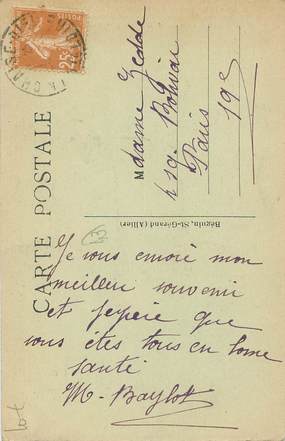 CARTE POSTALE
Madame Zedde
4 sq. Bolivar
Paris 19e
Béguin, St-Gérand (Allier)
43
Je vous envoie mon
meilleur souvenir
et j'espère que
vous êtes tous en bonne
santé
M. Baylot
Lot
25c